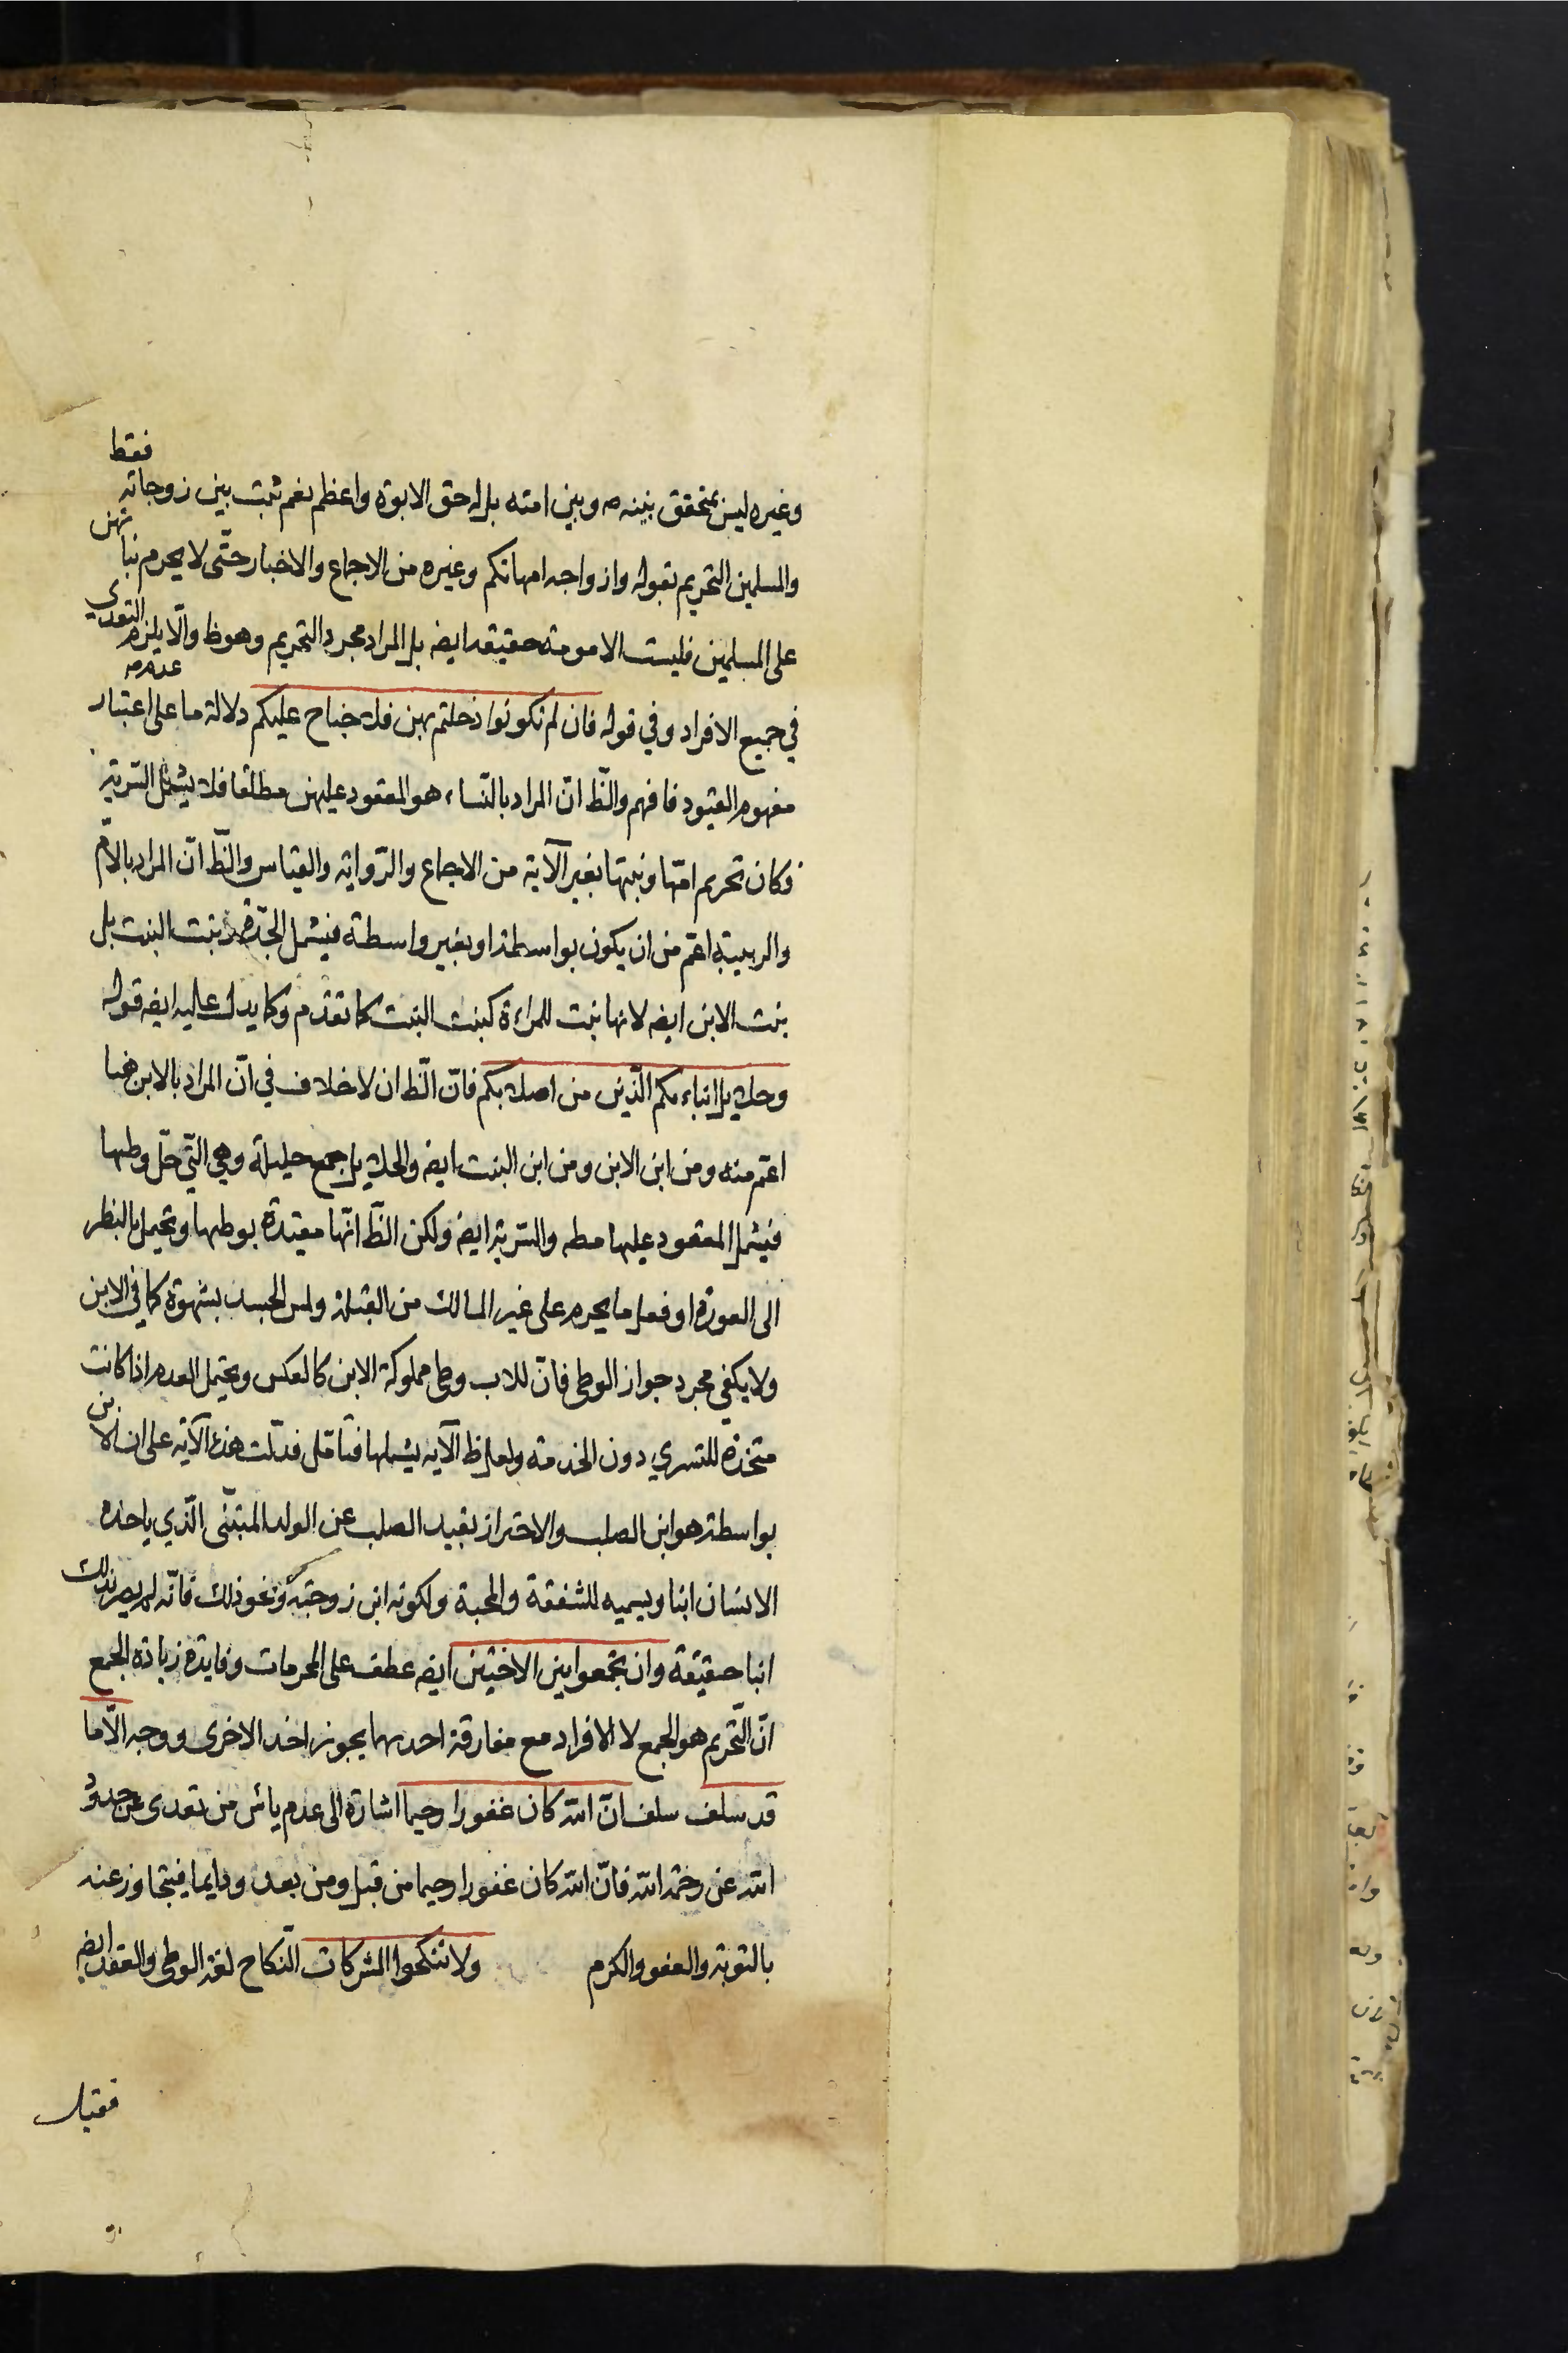 وغيره ليس بمتحقق بينه ص وبين امته بل له حق الابوة واعظم نعم ثبت بين زوجاته فقط
والمسلمين التحريم بقوله وازواجه امهاتكم وغيره من الاجماع والاخبار حتّى لا يحرم بناتهن
على المسلمين فليست الامومة حقيقه ايضه بل المراد مجرد التحريم وهوظ والّا يلزم التعدى
في جميع الافراد وفي قوله فان لم تكونوا دخلتم بهن فلا جناح عليكم دلالة ما على اعتبار عدم
مفهوم القيود فافهم والظّ انّ المراد بالنّساء هو المعقود عليهن مطلقا فلا يشمل السّرية
فكان تحريم امّها وبنتها بغير الآية من الاجماع والرّواية والقياس والظّ انّ المراد بالامّ
والربيبة اعّم من ان يكون بواسطة او بغير واسطة فيشمل الجدّة وبنت البنت بل
بنت الابن ايضه لانها بنت للمراءة كبنت البنت كما تقدّم وكما يدل عليه ايضه قوله
وحلايل ابناءكم الّذين من اصلابكم فانّ الظّ ان لا خلاف في انّ المراد بالابن هنا
اعّم منه ومن ابن الابن ومن ابن البنت ايضه والحلايل جمع حليلة وهي الّتي حلّ وطيها
فيشمل المعقود عليها مطه والسّرية ايضه ولكن الظّ انّها مقيّدة بوطيها ويحتمل بالنظر
الى العورة او فعل ما يحرم على غير المالك من القبلة ولمس الجسد بشهوة كما في الابن
ولا يكفي مجرد جواز الوطى فانّ للاب وطى مملوكة الابن كالعكس ويحتمل العدم اذا كانت
متخذة للتسري دون الخدمة ولعل ظ الآية يشملها فتامّل فدلّت هذه الآية على ان الابن
بواسطة هو ابن الصلب والاحتراز بقيد الصلب عن الولد المتبنّى الّذي ياخذه
الانسان ابنا ويسميه للشفقة والمحبة ولكونه ابن زوجته ونحو ذلك فانّه لم يصر بذلك
ابنا حقيقة وان تجمعوا بين الاختين ايضه عطف على المحرمات وفايدة زيادة الجمع
انّ التّحريم هو الجمع لا الافراد مع مفارقة احديهما يجوز اخذ الاخرى ووجه الّا ما
قد سلف سلف انّ الله كان غفورا رحيما اشارة الى عدم يأس من تعدى عن حدود
الله عن رحمة الله فانّ الله كان غفورا رحيما من قبل ومن بعد ودايما فيتجاوز عنه
بالتوبة والعفو والكرم ولا تنكحوا المشركات النّكاح لغة الوطى والعقد ايضه
فقيل